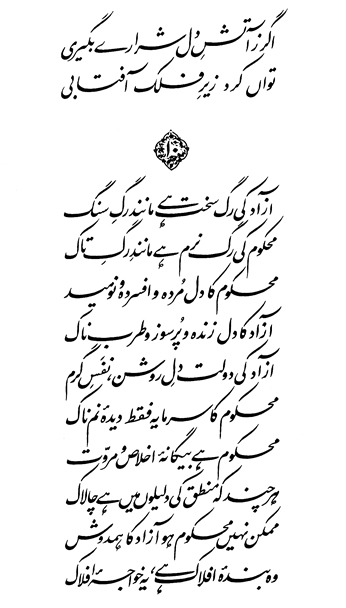 اگر زآتشِ دل شرارے بگیری
تواں کرد زیرِ فلک آفتابی
۱۰
آزاد کی رگ سخت ہے مانندِ رگِ سنگ
محکوم کی رگ نرم ہے مانندِ رگِ تاک
محکوم کا دل مُردہ و افسردہ و نومید
آزاد کا دل زندہ و پُرسوز و طرب ناک
آزاد کی دولت دلِ روشن، نفَسِ گرم
محکوم کا سرمایہ فقط دیدۂ نم ناک
محکوم ہے بیگانۂ اخلاص و مروّت
ہرچند کہ منطق کی دلیلوں میں ہے چالاک
ممکن نہیں محکوم ہو آزاد کا ہمدوش
وہ بندۂ افلاک ہے، یہ خواجۂ افلاک